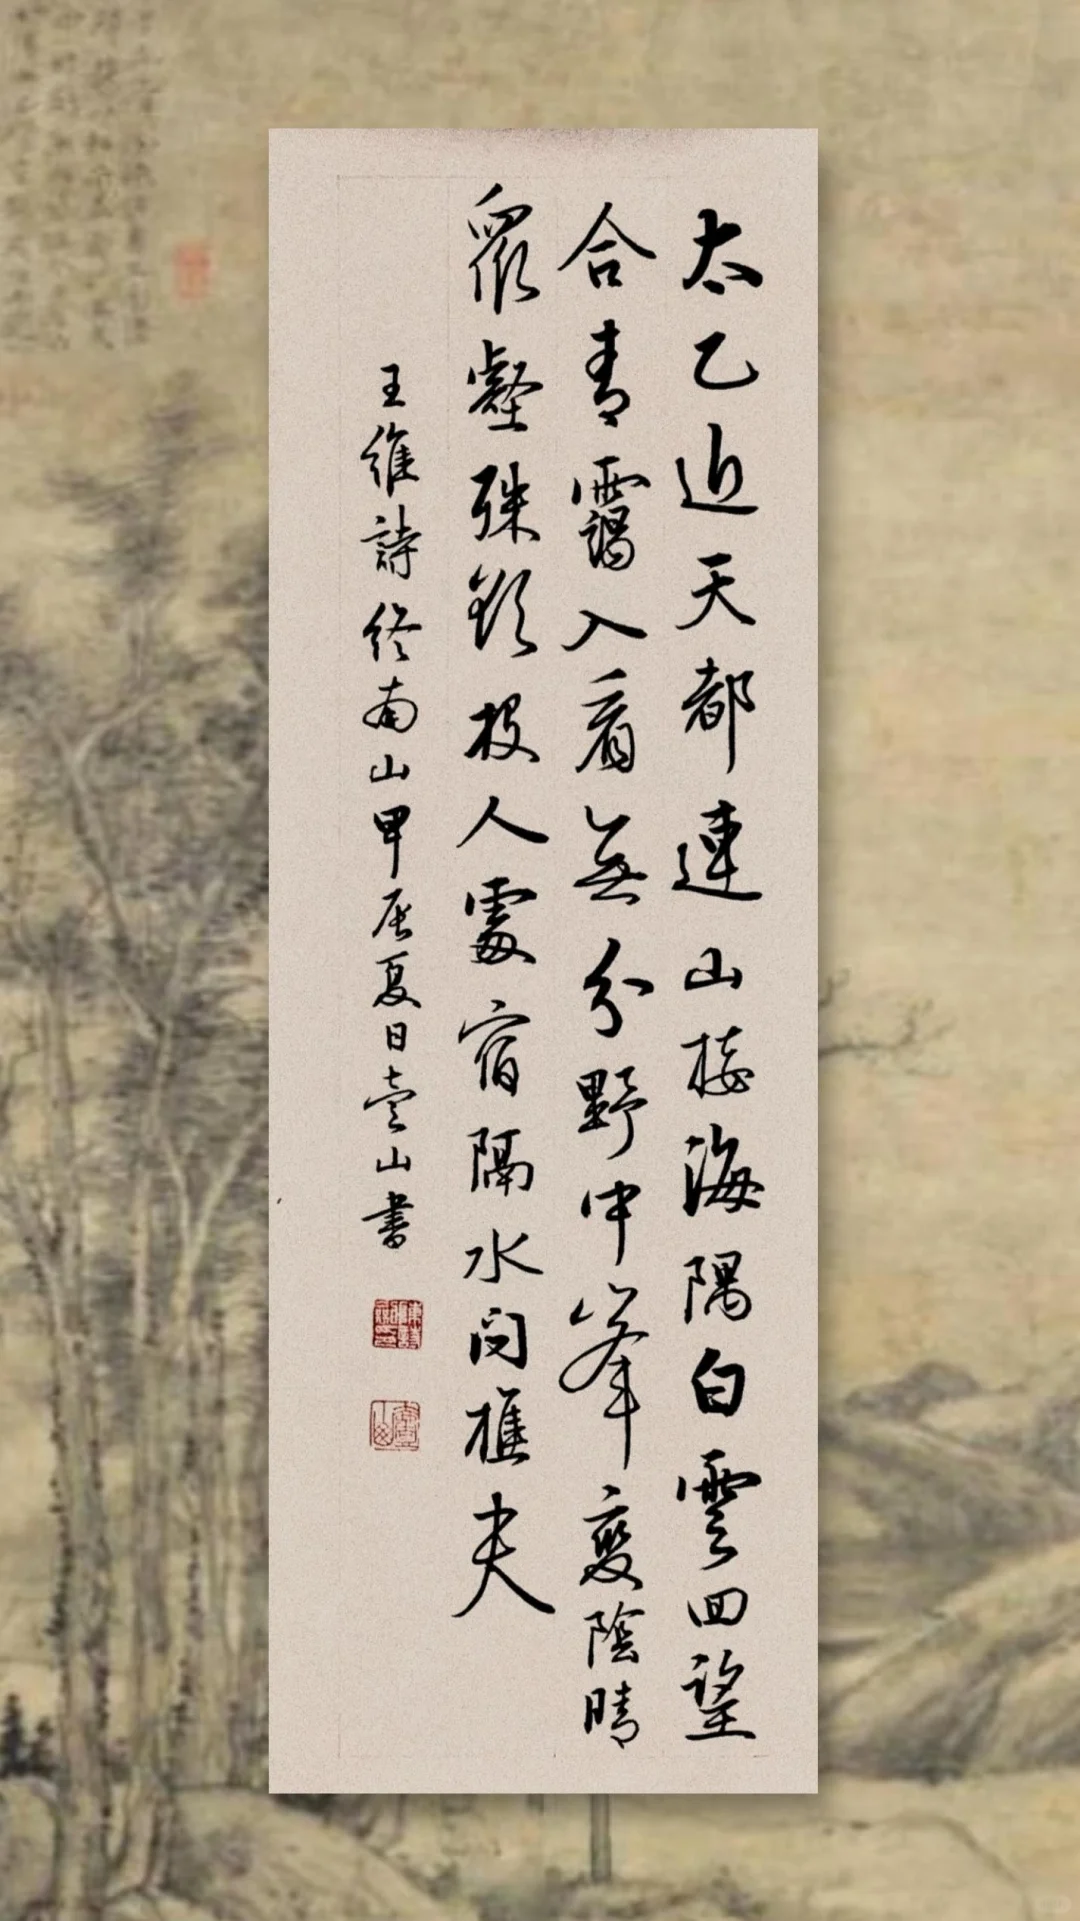 太乙近天都連山接海隅白雲回望
合青靄入看無分野中峯變陰晴
眾壑殊欲投人處宿隔水問樵夫
王維詩終南山甲辰夏日壺山書